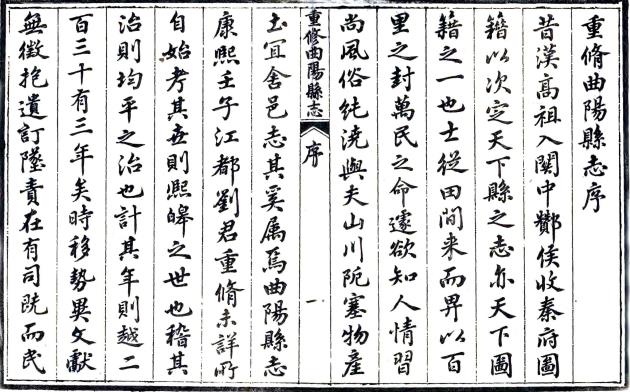 重脩曲陽縣志序
昔漢高祖入關中酇侯收秦府圖
籍以次定天下縣之志亦天下圖
籍之一也士從田間来而畀以百
里之封萬民之命遽欲知人情習
尚風俗純澆與夫山川阨塞物產
重修曲陽縣志 序 一
土冝舍邑志其奚属焉曲陽縣志
康熙壬子江都劉君重脩未詳所
自始考其世則熙皞之世也稽其
治則均平之治也計其年則越二
百三十有三年矣時移勢異文獻
無徵抱遺訂墜責在有司旣而民